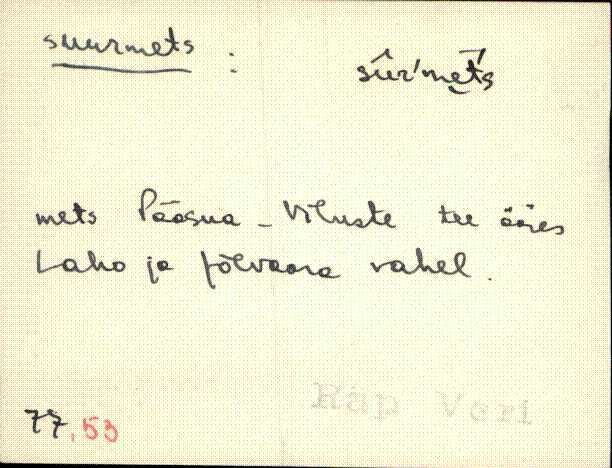 suurmets : sûr'met́s
mets Pääsna - Viluste tee ääres
Laho ja Jõevaara vahel.
77, 53
Räp Veri